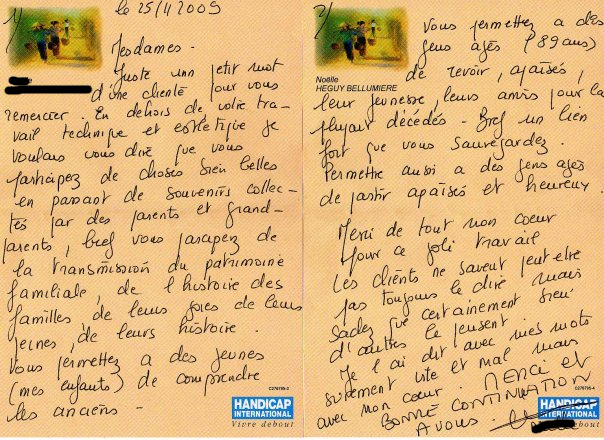 1)
le 25/11/2009
Mesdames.
Juste un petit mot
d'une cliente pour vous
remercier. En dehors de votre tra-
vail technique et esthetique je
voulais vous dire que vous
participez de choses bien belles
en passant de souvenirs collec-
tés par des parents et grand-
parents, bref vous parcipez de
la transmission du patrimoine
familiale, de l'histoire des
familles de leurs joies de leurs
peines, de leurs histoire.
Vous permettez a des jeunes
(mes enfants) de comprendre
les anciens.
C276795-3
HANDICAP
INTERNATIONAL
Vivre debout
2/
Noëlle
HEGUY BELLUMIERE
Vous permettez a des
gens agés (89 ans)
de revoir, apaisés,
leur jeunesse, leurs amis pour la
plupart décédés. Bref un lien
fort que vous sauvegardez.
Permettre aussi a des gens agés
de partir apaisés et heureux.
Merci de tout mon coeur
pour ce joli travail
Les clients ne savent peut etre
pas toujours le dire mais
sachez que certainement bien
d'autres le pensent.
Je l'ai dit avec mes mots
surement vite et mal mais
avec mon coeur. MERCI et
BONNE CONTINUATION
A VOUS.
C276795-4
HANDICAP
INTERNATIONAL
Vivre debout